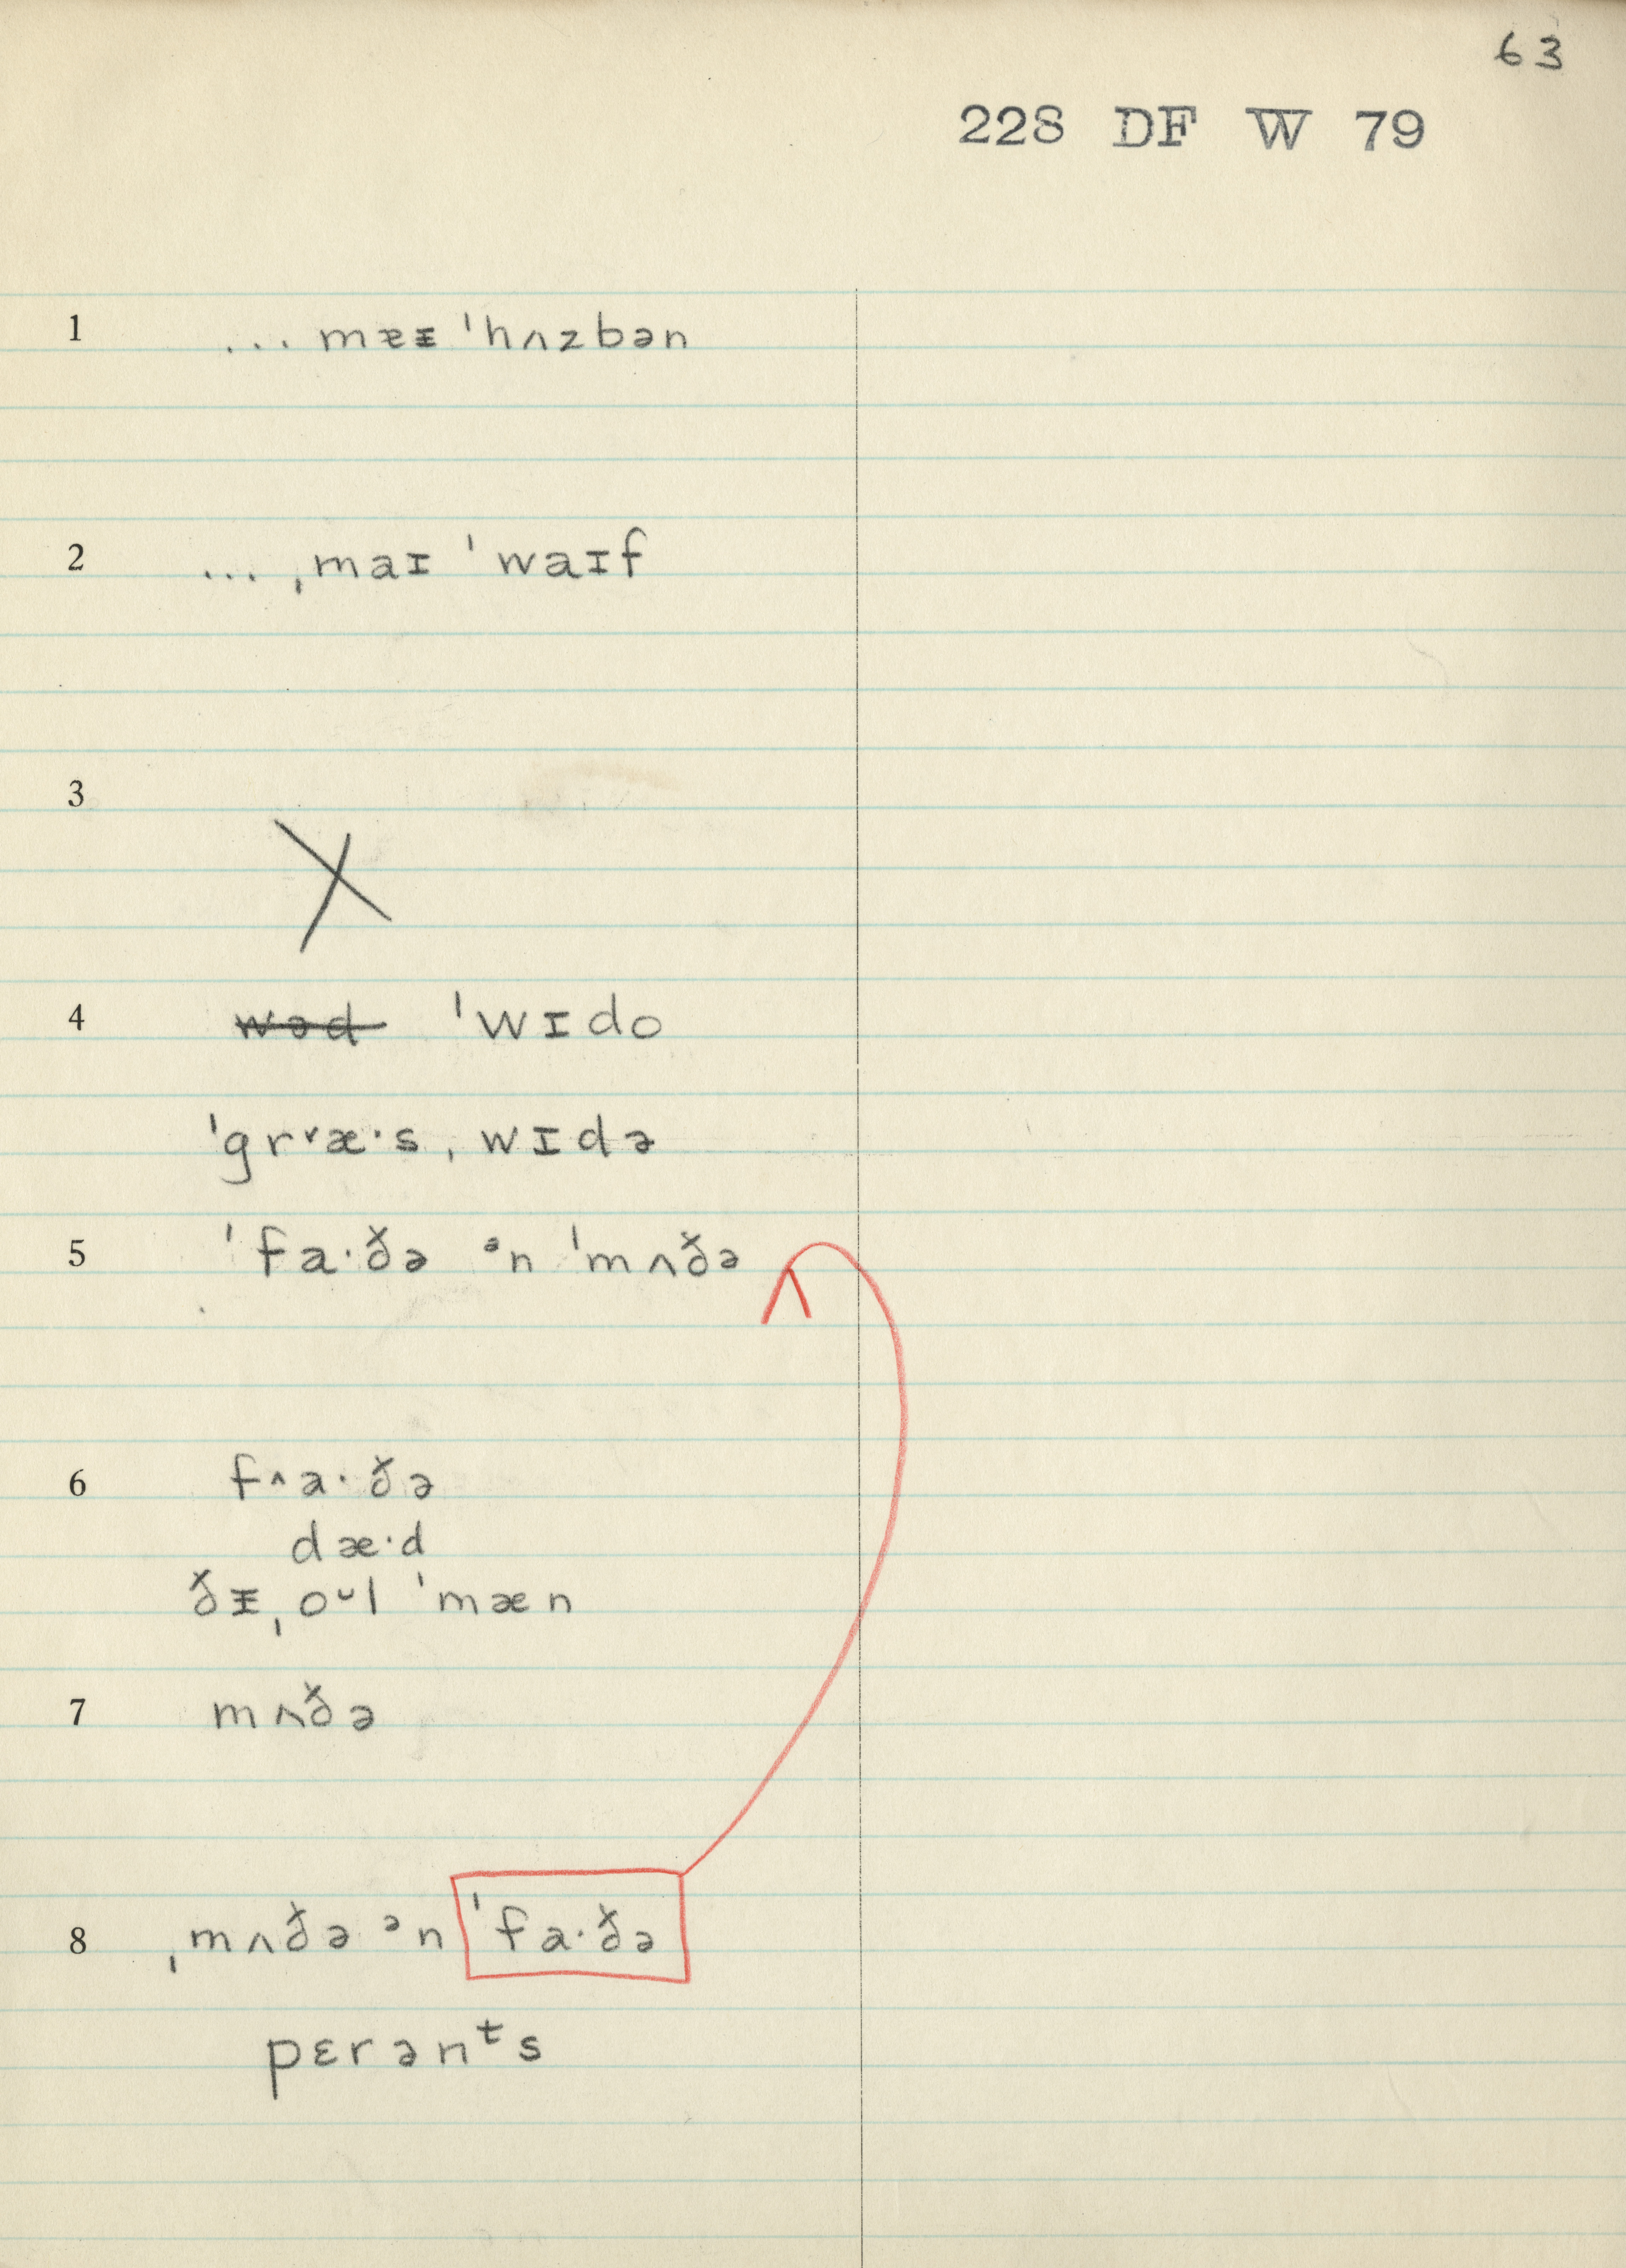 63
228 DF W 79
1 ... mɐᵻ ˈhʌzbən
2 ... ˌmaɪ ˈwaɪf
3 X
4 wəd ˈwɪdo
ˈgr˅æ·sˌwɪdə
5 ˈfa·ðə ᵊn ˈmʌðə
6 f˄a·ðə
dæ·d
ðᵻˌoᵕl ˈmæn
7 mʌðə
8 ˌmʌðə ᵊn ˈfa·ðə
pɛrənᵗs